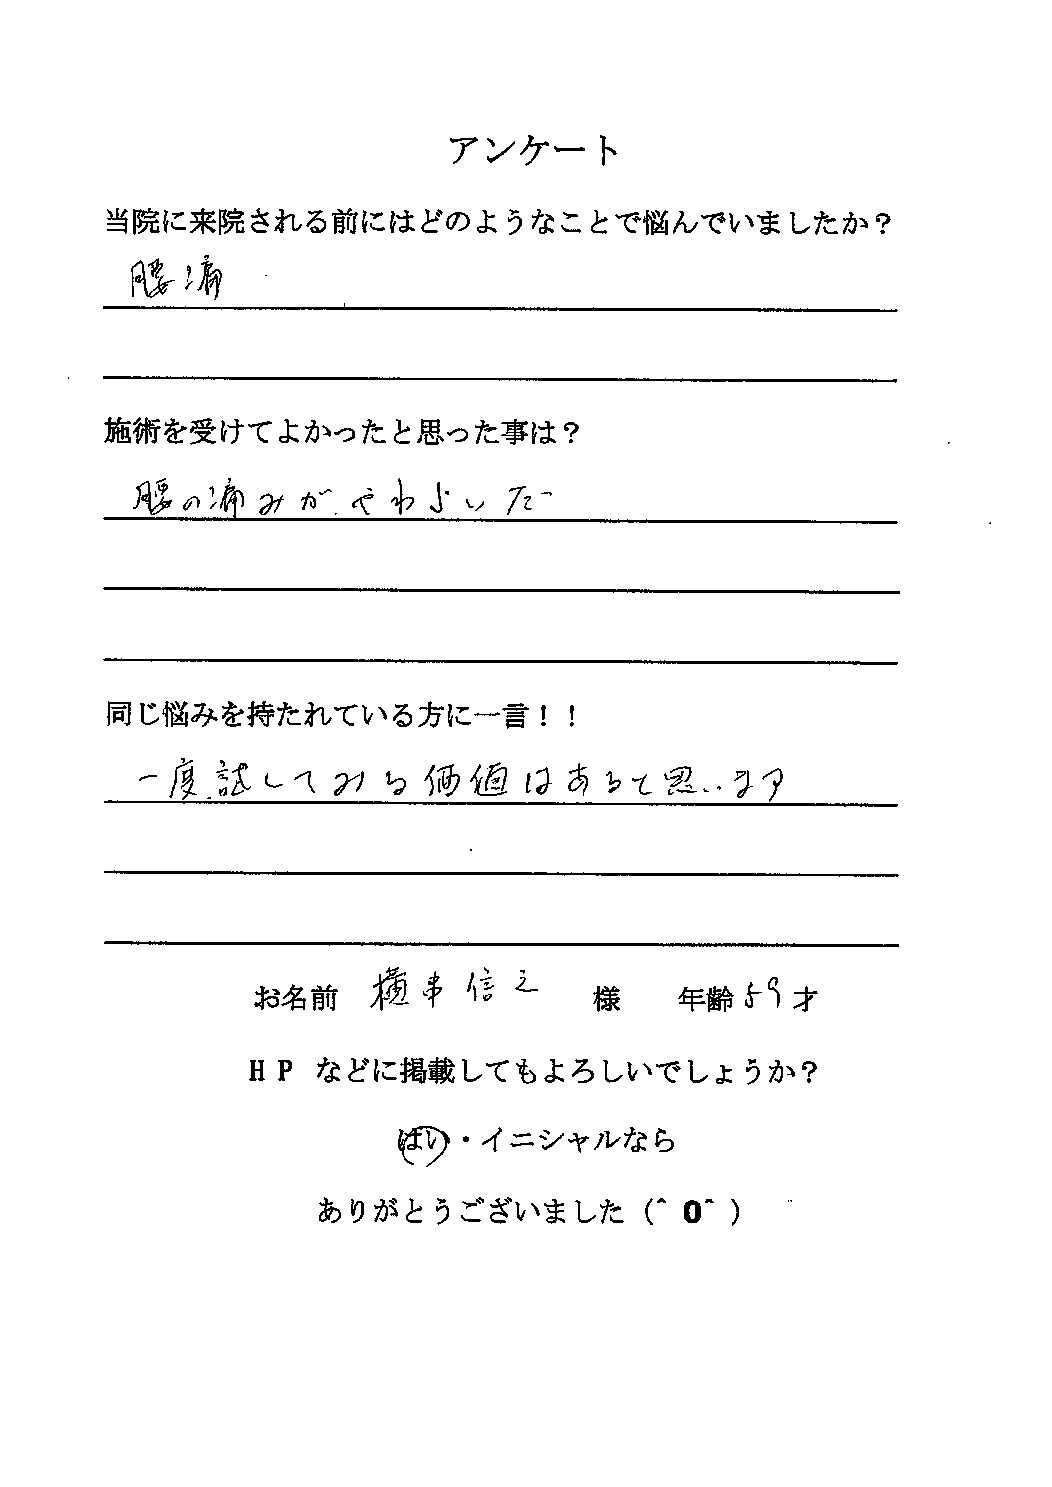 アンケート
当院に来院される前にはどのようなことで悩んでいましたか？
腰痛
施術を受けてよかったと思った事は？
腰の痛みがやわらいだ
同じ悩みを持たれている方に一言！！
一度試してみる価値はあると思います
お名前 横 信之 様 年齢 59 才
HP などに掲載してもよろしいでしょうか？
はい・イニシャルなら
ありがとうございました（＾0＾）